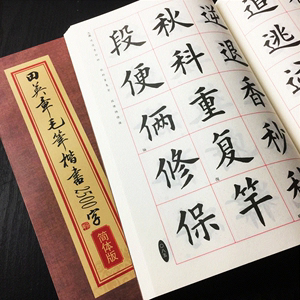 田英章毛筆楷書2500字
简体版
追逃
逆退香
秋科重复竿
段便俩修保